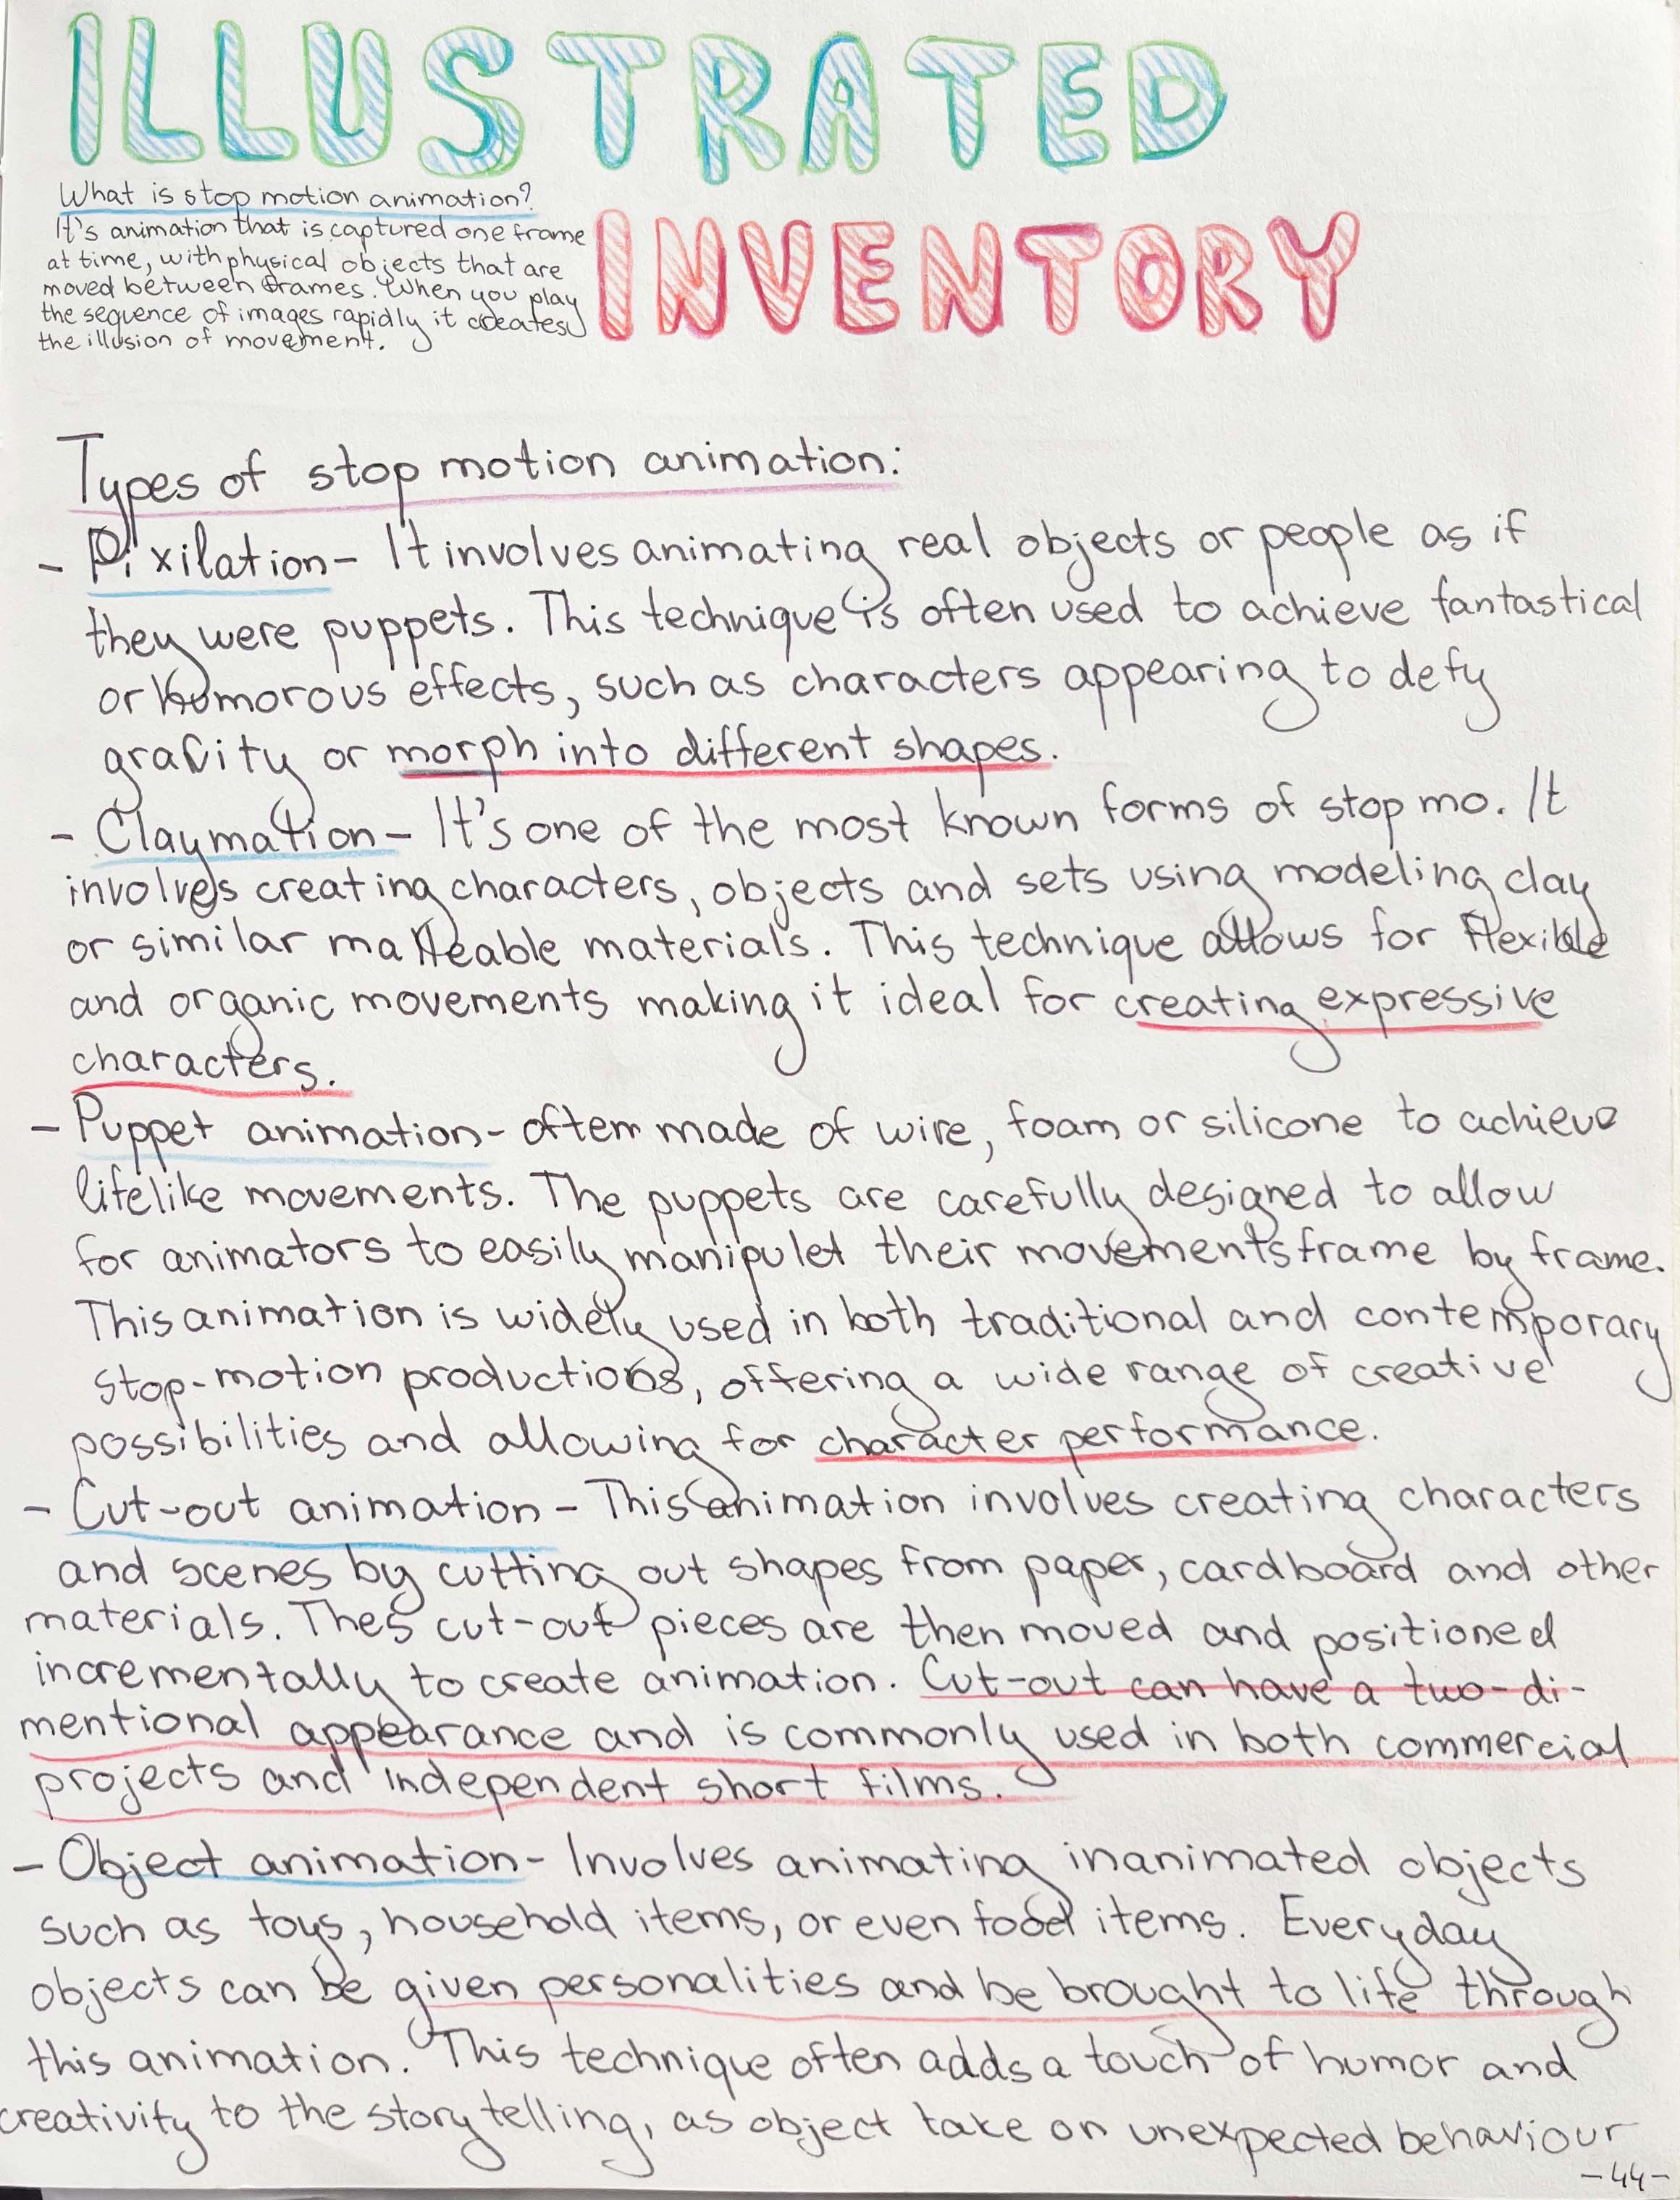 ILLUSTRATED
INVENTORY
What is stop motion animation?
It's animation that is captured one frame
at time, with physical objects that are
moved between frames. When you play
the sequence of images rapidly it creates
the illusion of movement.
Types of stop motion animation:
- Pixilation - It involves animating real objects or people as if
they were puppets. This technique is often used to achieve fantastical
or humorous effects, such as characters appearing to defy
gravity or morph into different shapes.
- Claymation - It's one of the most known forms of stop mo. It
involves creating characters, objects and sets using modeling clay
or similar malleable materials. This technique allows for flexible
and organic movements making it ideal for creating expressive
characters.
- Puppet animation - often made of wire, foam or silicone to achieve
lifelike movements. The puppets are carefully designed to allow
for animators to easily manipulet their movements frame by frame.
This animation is widely used in both traditional and contemporary
stop-motion productions, offering a wide range of creative
possibilities and allowing for character performance.
- Cut-out animation - This animation involves creating characters
and scenes by cutting out shapes from paper, cardboard and other
materials. Thes cut-out pieces are then moved and positioned
incrementally to create animation. Cut-out can have a two-di-
mentional appearance and is commonly used in both commercial
projects and independent short films.
- Object animation - Involves animating inanimated objects
such as toys, household items, or even food items. Everyday
objects can be given personalities and be brought to life through
this animation. This technique often adds a touch of humor and
creativity to the story telling, as object take on unexpected behaviour
-44-